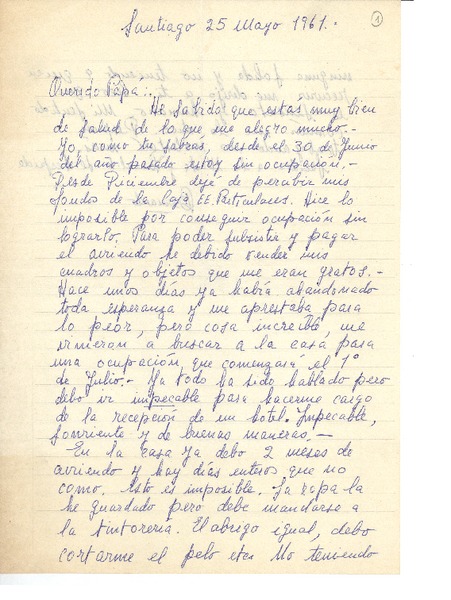 Santiago 25 Mayo 1961.-
1
Querido Papá:.
He sabido que estas muy bien
de salud de lo que me alegro mucho.-
Yo, como tu sabras, desde el 30 de Junio
del año pasado estoy sin ocupación.-
Desde Diciembre dejé de percibir mis
fondos de la Caja EE. Particulares. Hice lo
imposible por conseguir ocupación sin
lograrlo. Para poder subsistir y pagar
el arriendo he debido vender mis
cuadros y objetos que me eran gratos.-
Hace unos días ya había abandonado
toda esperanza y me aprestaba para
lo peor, pero cosa increíble, me
vinieron a buscar a la casa para
una ocupación, que comenzará el 1º
de Julio.- Ya todo ha sido hablado pero
debo ir impecable para hacerme cargo
de la recepción de un hotel. Impecable,
sonriente y de buenas maneras.-
En la casa ya debo 2 meses de
arriendo y hay días enteros que no
como. Esto es imposible. La ropa la
he guardado pero debe mandarse a
la tintorería. El abrigo igual, debo
cortarme el pelo etc. No teniendo